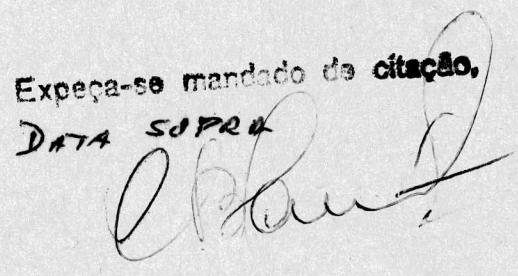 Expeça-se mandado de citação.
DATA SUPRA